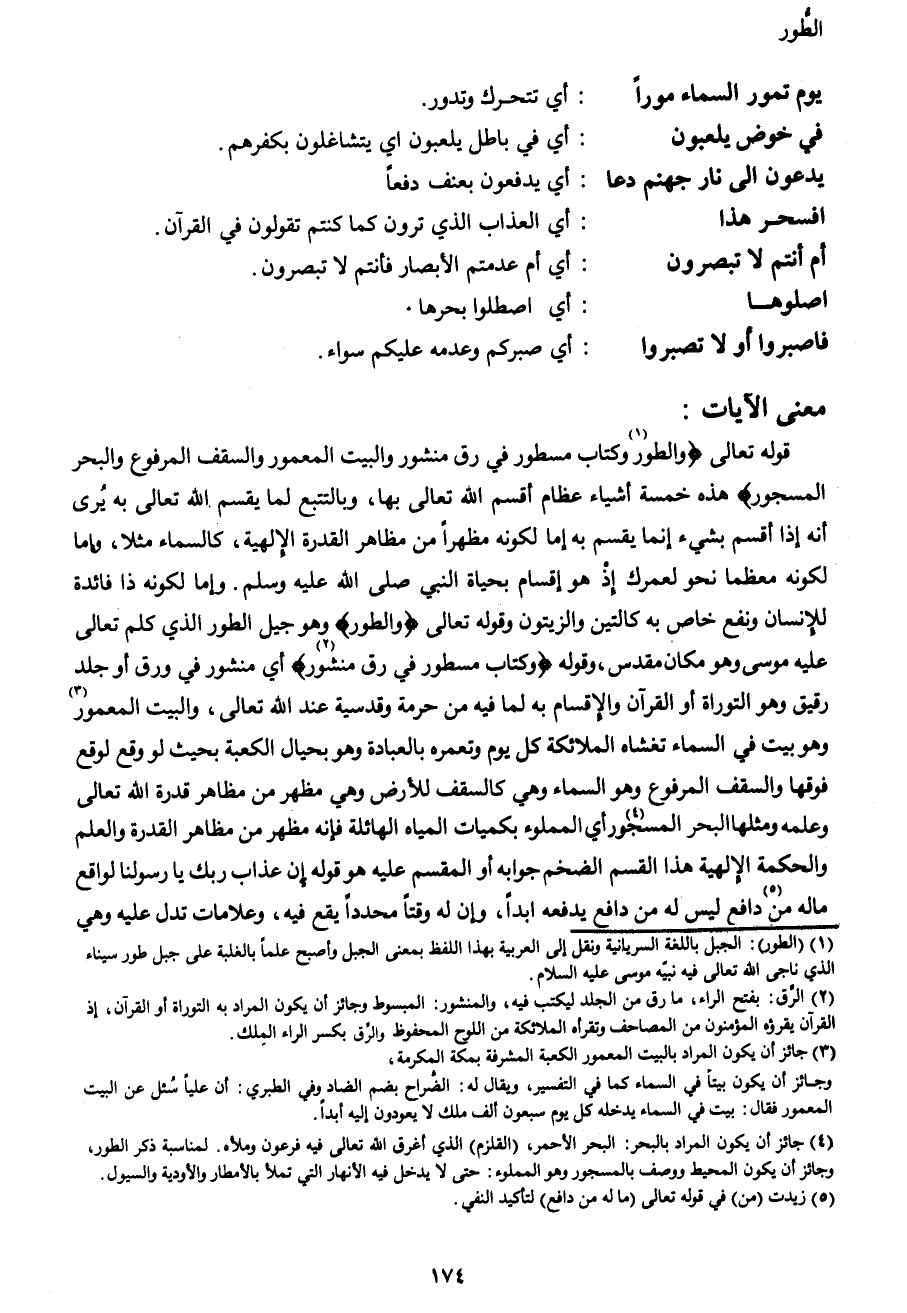 الطُّور
يوم تمور السماء موراً : أي تتحرك وتدور.
في خوض يلعبون : أي في باطل يلعبون اي يتشاغلون بكفرهم.
يدعون الى نار جهنم دعا : أي يدفعون بعنف دفعاً
افسحر هذا : أي العذاب الذي ترون كما كنتم تقولون في القرآن.
أم أنتم لا تبصرون : أي أم عدمتم الأبصار فأنتم لا تبصرون.
اصلوهــا : أي اصطلوا بحرها.
فاصبروا أو لا تصبروا : أي صبركم وعدمه عليكم سواء.
معنى الآيات :
قوله تعالى ﴿والطور(١) وكتاب مسطور في رق منشور والبيت المعمور والسقف المرفوع والبحر
المسجور﴾ هذه خمسة أشياء عظام أقسم الله تعالى بها، وبالتتبع لما يقسم الله تعالى به يُرى
أنه إذا أقسم بشيء إنما يقسم به إما لكونه مظهراً من مظاهر القدرة الإلهية، كالسماء مثلا، وإما
لكونه معظما نحو لعمرك إذْ هو إقسام بحياة النبي صلى الله عليه وسلم. وإما لكونه ذا فائدة
للإنسان ونفع خاص به كالتين والزيتون وقوله تعالى ﴿والطور﴾ وهو جيل الطور الذي كلم تعالى
عليه موسى وهو مكان مقدس، وقوله ﴿وكتاب مسطور في رق منشور(٢)﴾ أي منشور في ورق أو جلد
رقيق وهو التوراة أو القرآن والإقسام به لما فيه من حرمة وقدسية عند الله تعالى، والبيت المعمور(٣)
وهو بيت في السماء تغشاه الملائكة كل يوم وتعمره بالعبادة وهو بحيال الكعبة بحيث لو وقع لوقع
فوقها والسقف المرفوع وهو السماء وهي كالسقف للأرض وهي مظهر من مظاهر قدرة الله تعالى
وعلمه ومثلها البحر المسجور(٤) أي المملوء بكميات المياه الهائلة فإنه مظهر من مظاهر القدرة والعلم
والحكمة الإلهية هذا القسم الضخم جوابه أو المقسم عليه هو قوله إن عذاب ربك يا رسولنا لواقع
ماله من(٥) دافع ليس له من دافع يدفعه ابداً، وإن له وقتاً محدداً يقع فيه، وعلامات تدل عليه وهي
(١) (الطور): الجبل باللغة السريانية ونقل إلى العربية بهذا اللفظ بمعنى الجبل وأصبح علماً بالغلبة على جبل طور سيناء
الذي ناجى الله تعالى فيه نبيّه موسى عليه السلام.
(٢) الرَّق: بفتح الراء، ما رق من الجلد ليكتب فيه، والمنشور: المبسوط وجائز أن يكون المراد به التوراة أو القرآن، إذ
القرآن يقرؤه المؤمنون من المصاحف وتقرأه الملائكة من اللوح المحفوظ والرِّق بكسر الراء المِلك.
(٣) جائز أن يكون المراد بالبيت المعمور الكعبة المشرفة بمكة المكرمة،
وجائز أن يكون بيتاً في السماء كما في التفسير، ويقال له: الضُّراح بضم الضاد وفي الطبري: أن علياً سُئل عن البيت
المعمور فقال: بيت في السماء يدخله كل يوم سبعون ألف ملك لا يعودون إليه أبداً.
(٤) جائز أن يكون المراد بالبحر: البحر الأحمر، (القلزم) الذي أغرق الله تعالى فيه فرعون وملأه. لمناسبة ذكر الطور،
وجائز أن يكون المحيط ووصف بالمسجور وهو المملوء: حتى لا يدخل فيه الأنهار التي تملأ بالأمطار والأودية والسيول.
(٥) زيدت (من) في قوله تعالى (ما له من دافع) لتأكيد النفي.
١٧٤